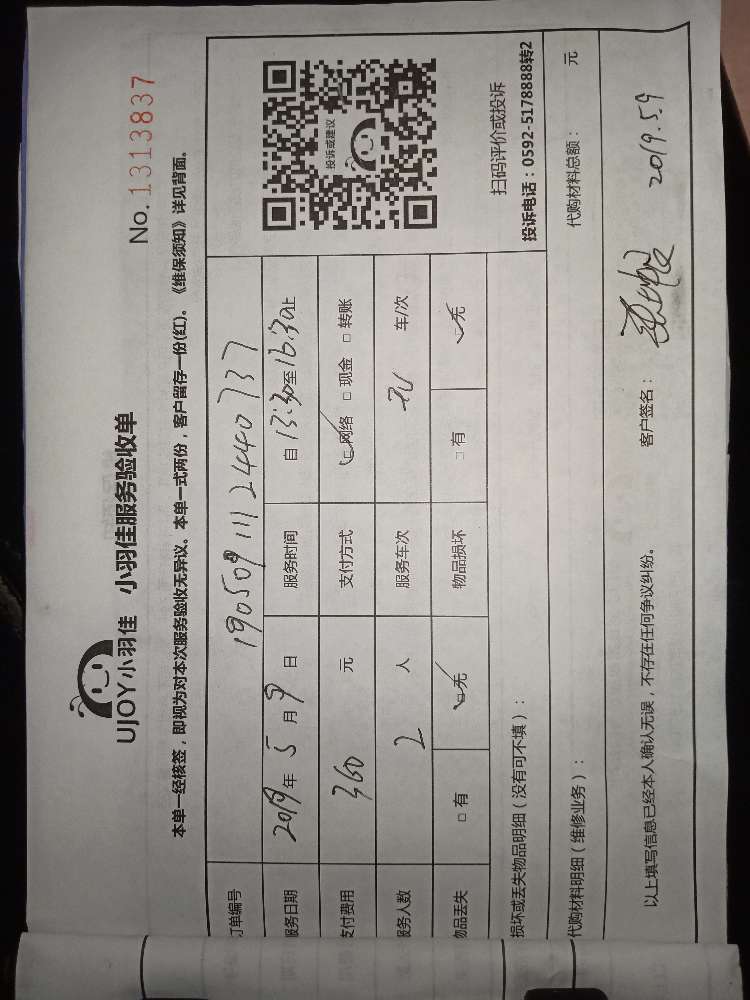 UJOY小羽佳 小羽佳服务验收单
No.1313837
本单一经核签，即视为对本次服务验收无异议。本单一式两份，客户留存一份(红)。《维保须知》详见背面。
订单编号 1905091112440737
服务日期 2019年5月9日 服务时间 自13:30至16:30止
支付费用 360 元 支付方式 □网络 □现金 □转账
服务人数 2 人 服务车次 车/次
物品丢失 □有 □无 物品损坏 □有 □无
投诉或建议
扫码评价或投诉
投诉电话：0592-5178888转2
损坏或丢失物品明细（没有可不填）：
代购材料明细（维修业务）： 代购材料总额： 元
以上填写信息已经本人确认无误，不存在任何争议纠纷。 客户签名： 2019.5.9